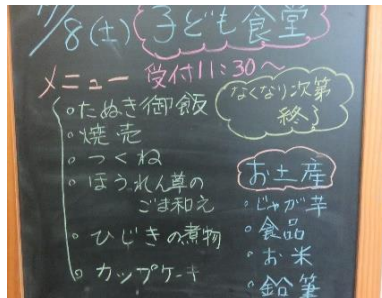 /8(土) 子ども食堂
メニュー 受付11:30〜
なくなり次第
終了
・たぬき御飯
・焼売
・つくね
・ほうれん草の
ごま和え
・ひじきの煮物
・カップケーキ
お土産
・じゃが芋
・食品
・お米
・鉛筆